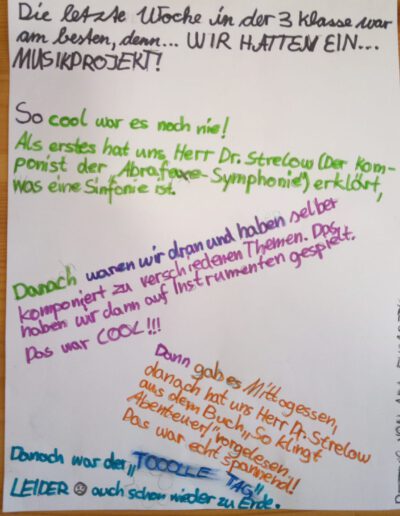 Die letzte Woche in der 3 Klasse war
am besten, denn... WIR HATTEN EIN...
MUSIKPROJEKT!
So cool war es noch nie!
Als erstes hat uns Herr Dr. Strelow (Der Kom-
ponist der „Abrafaxe-Symphonie") erklärt,
was eine Sinfonie ist.
Danach waren wir dran und haben selber
komponiert zu verschiedenen Themen. Das
haben wir dann auf Instrumenten gespielt.
Das war COOL!!!
Dann gab es Mittagessen,
danach hat uns Herr Dr. Strelow
aus dem Buch „So klingt
Abenteuer!" vorgelesen.
Das war echt spannend!
Danach war der „TOOOLLE TAG"
LEIDER ☹ auch schon wieder zu Ende.